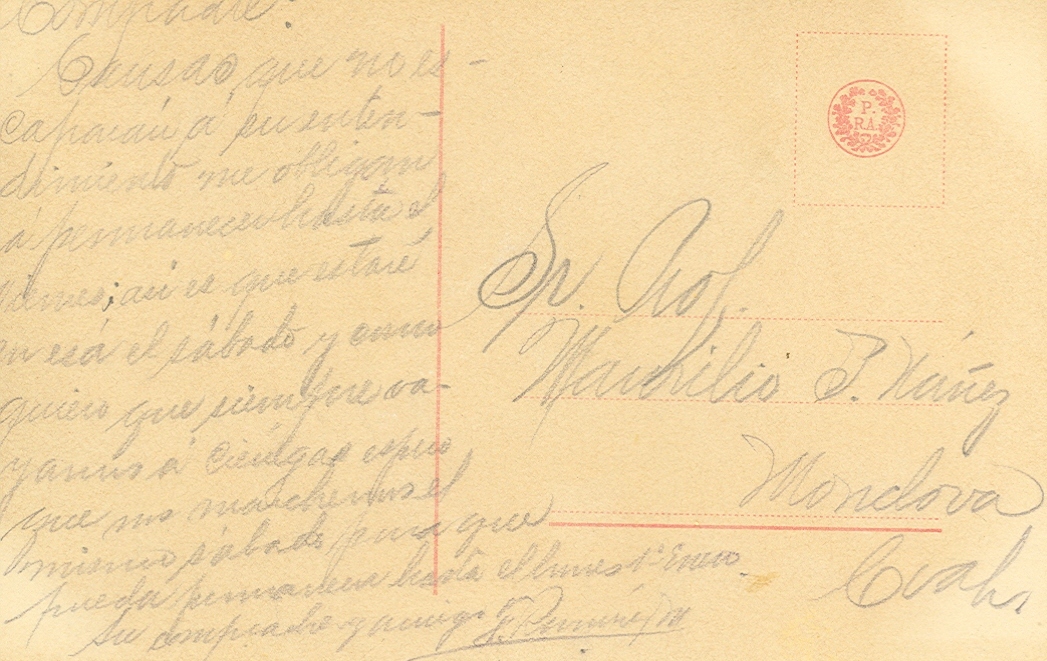 Compadre:
Causas que no es-
caparán á su enten-
dimiento me obligan
á permanecer hasta el
viernes; así es que estaré
en esa el sábado y como
quiero que siempre va-
yamos á Ciénegas espero
que nos marchemos el
mismo sábado para que
pueda permanecer hasta el lunes 1º Enero
Su compadre y amigo
P.
RA.
Sr. Prof.
Maurilio P. Núñez
Monclova
Coah.